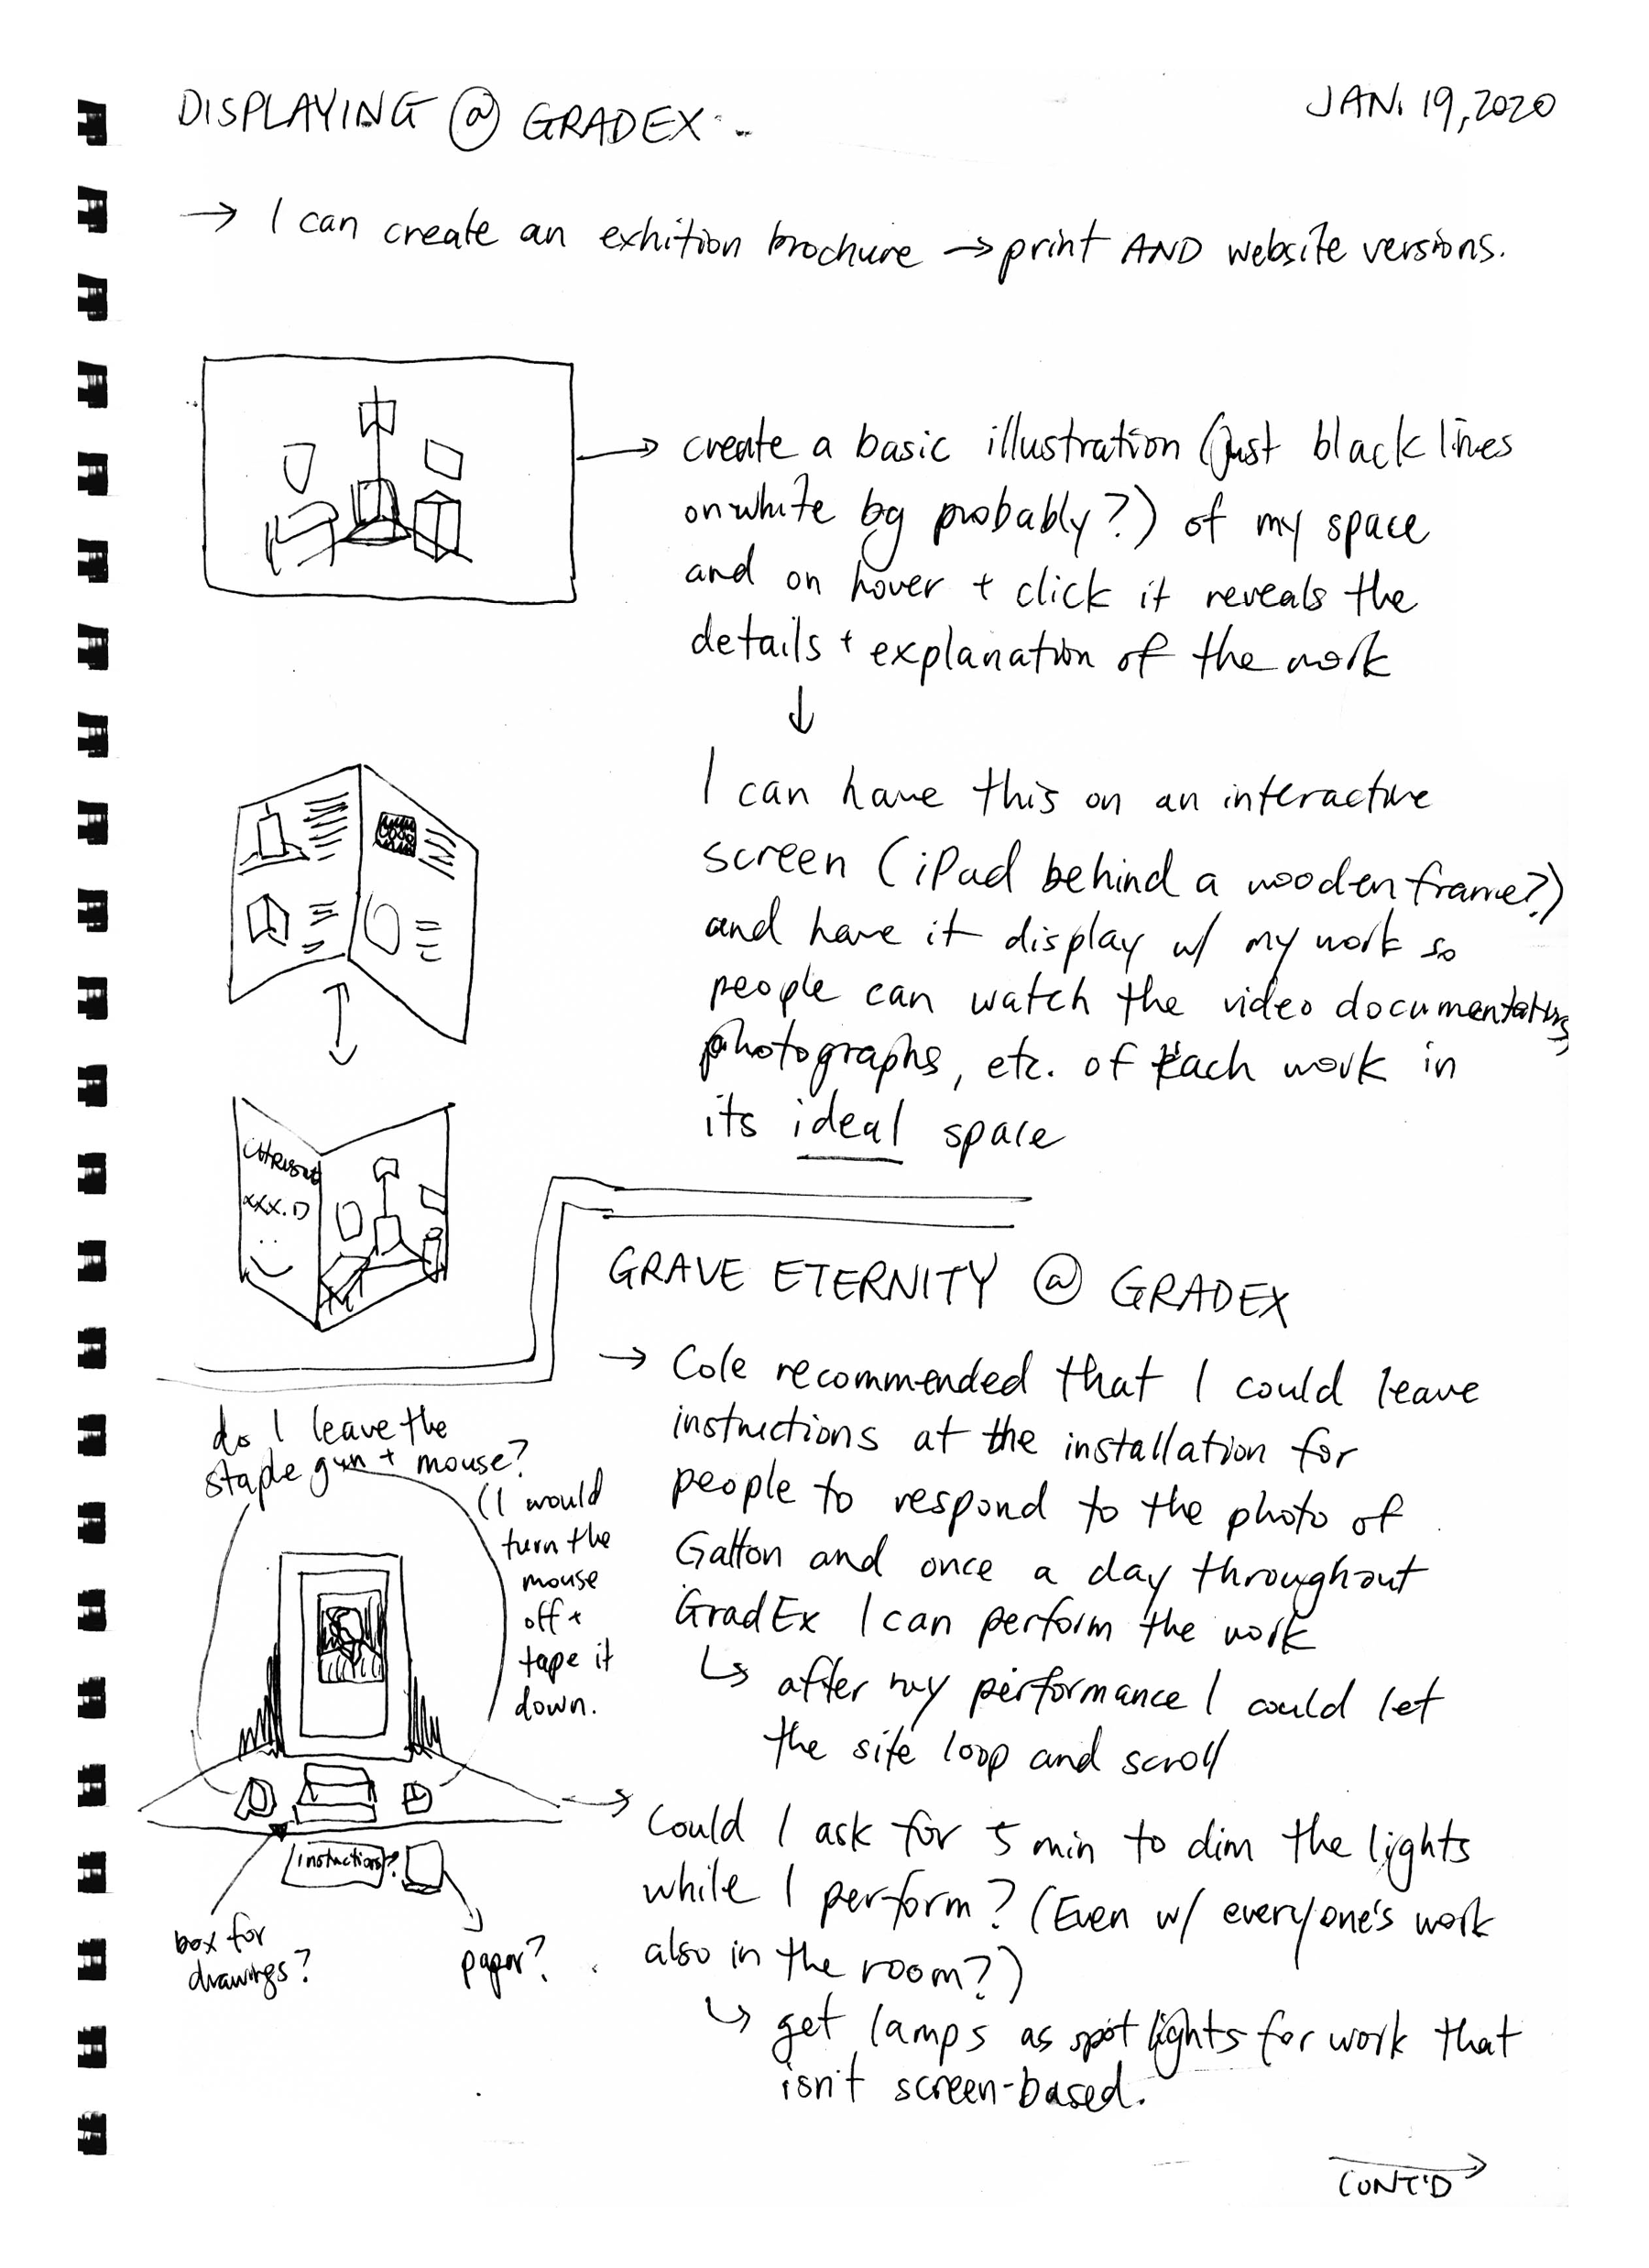 DISPLAYING @ GRADEX
JAN. 19, 2020
→ I can create an exhition brochure → print AND website versions.
→ create a basic illustration (just black lines
on white bg probably?) of my space
and on hover + click it reveals the
details + explanation of the work
↓
I can have this on an interactive
screen (iPad behind a wooden frame?)
and have it display w/ my work so
people can watch the video documentations,
photographs, etc. of each work in
its ideal space
XXX.D
GRAVE ETERNITY @ GRADEX
→ Cole recommended that I could leave
instructions at the installation for
people to respond to the photo of
Galton and once a day throughout
GradEx I can perform the work
↳ after my performance I could let
the site loop and scroll
do I leave the
staple gun + mouse?
(I would
turn the
mouse
off +
tape it
down.
instructions?
box for
drawings?
paper?
→ Could I ask for 5 min to dim the lights
while I perform? (Even w/ everyone's work
also in the room?)
↳ get lamps as spotlights for work that
isn't screen-based.
CONT'D →